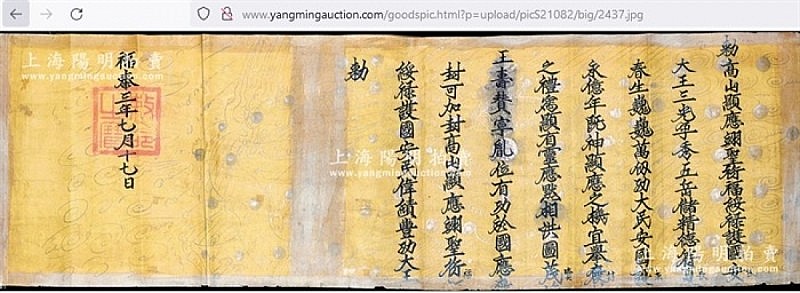 www.yangmingauction.com/goodspic.html?p=upload/picS21082/big/2437.jpg
勅高山顯應翊聖衍福綏祿護國安
大王三光孕秀五岳儲精德備
春生巍巍萬仭功大民安國
永億年既神顯應之機宜舉褒
之禮寔顯有靈應黙相洪圖茂
王壽賛寧胤位有功於國應
封可加封高山顯應翊聖衍
綏祿護國安民偉績豐功大王
勅
福泰三年七月十七日
敕命之寶
上海陽明拍賣
www.yangmingauction.com
上海陽明拍賣
www.yangmingauction.com
上海陽明拍賣
www.yangmingauction.com